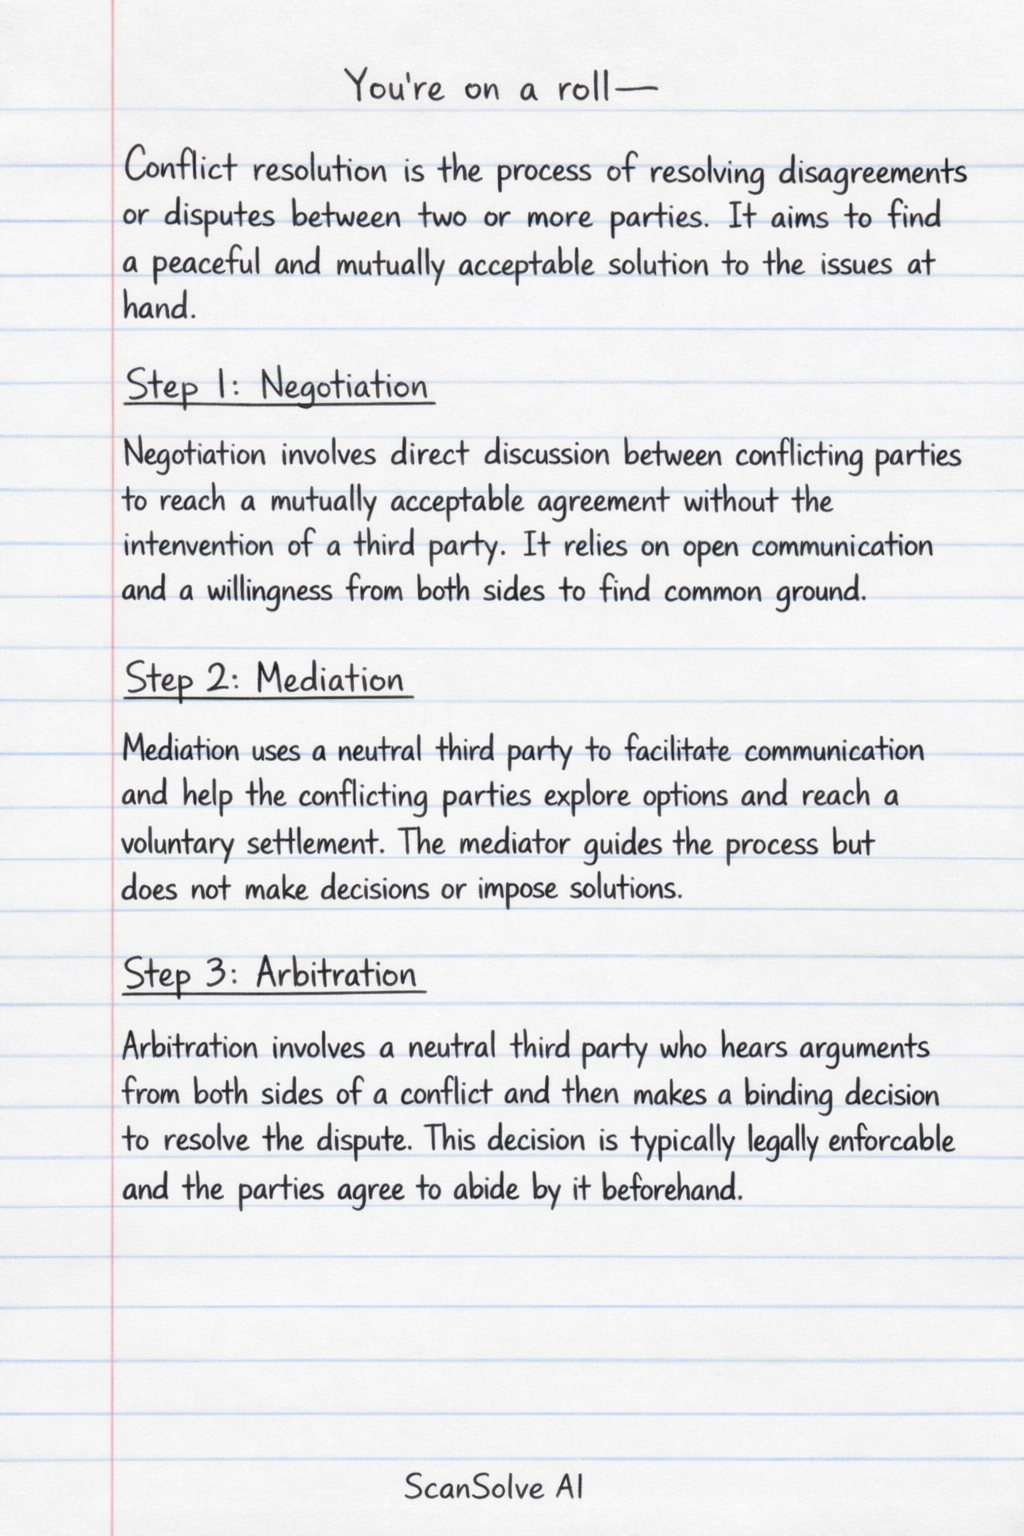 You're on a roll—
Conflict resolution is the process of resolving disagreements
or disputes between two or more parties. It aims to find
a peaceful and mutually acceptable solution to the issues at
hand.
Step 1: Negotiation
Negotiation involves direct discussion between conflicting parties
to reach a mutually acceptable agreement without the
intenvention of a third party. It relies on open communication
and a willingness from both sides to find common ground.
Step 2: Mediation
Mediation uses a neutral third party to facilitate communication
and help the conflicting parties explore options and reach a
voluntary settlement. The mediator guides the process but
does not make decisions or impose solutions.
Step 3: Arbitration
Arbitration involves a neutral third party who hears arguments
from both sides of a conflict and then makes a binding decision
to resolve the dispute. This decision is typically legally enforcable
and the parties agree to abide by it beforehand.
ScanSolve AI